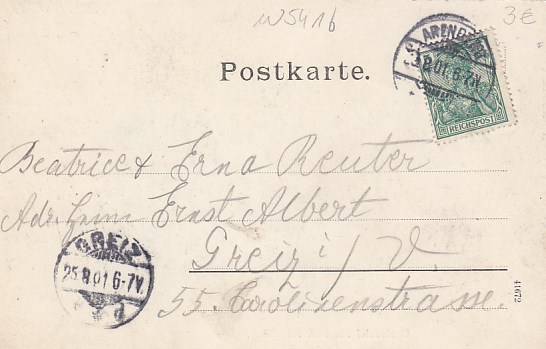 W5416
3€
Postkarte.
ARENDSEE
.8.01.6-7V.
REICHSPOST
Beatrice & Erna Reuter
Adr. Herrn Ernst Albert
Greiz i/V.
55 Carolinenstrasse.
GREIZ
25.8.01 6-7V.
41672